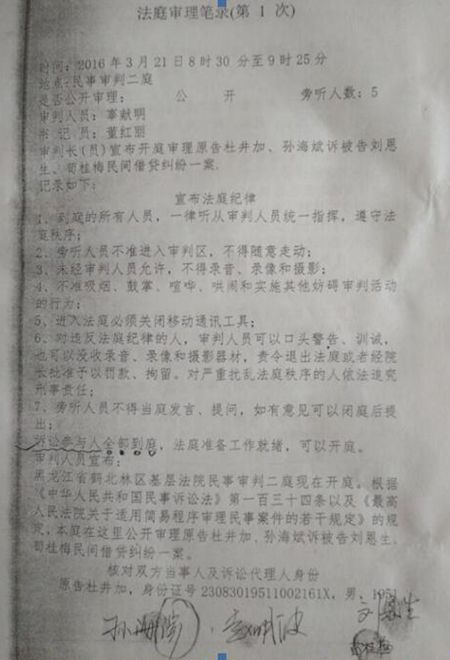 法庭审理笔录(第 1 次)
时间：2016 年 3 月 21 日 8 时 30 分至 9 时 25 分
站点：民事审判二庭
是否公开审理： 公 开 旁听人数：5
审判人员：辜献明
书 记 员：董红丽
审判长(员)宣布开庭审理原告杜井加、孙海斌诉被告刘恩生、
荀桂梅民间借贷纠纷一案.
记录如下：
宣布法庭纪律
1、到庭的所有人员，一律听从审判人员统一指挥，遵守法
庭秩序；
2、旁听人员不准进入审判区，不得随意走动；
3、未经审判人员允许，不得录音、录像和摄影；
4、不准吸烟、鼓掌、喧哗、哄闹和实施其他妨碍审判活动
的行为；
5、进入法庭必须关闭移动通讯工具；
6、对违反法庭纪律的人，审判人员可以口头警告、训诫，
也可以没收录音、录像和摄影器材，责令退出法庭或者经院
长批准予以罚款、拘留。对严重扰乱法庭秩序的人依法追究
刑事责任；
7、旁听人员不得当庭发言、提问，如有意见可以闭庭后提
出；
诉讼参与人全部到庭，法庭准备工作就绪，可以开庭。
审判人员宣布：
黑龙江省鹤北林区基层法院民事审判二庭现在开庭。根据
《中华人民共和国民事诉讼法》第一百三十四条以及《最高
人民法院关于适用简易程序审理民事案件的若干规定》的规
定，本庭在这里公开审理原告杜井加、孙海斌诉被告刘恩生、
荀桂梅民间借贷纠纷一案。
核对双方当事人及诉讼代理人身份
原告杜井加，身份证号 23083019511002161X，男，1951
孙海斌 刘恩生